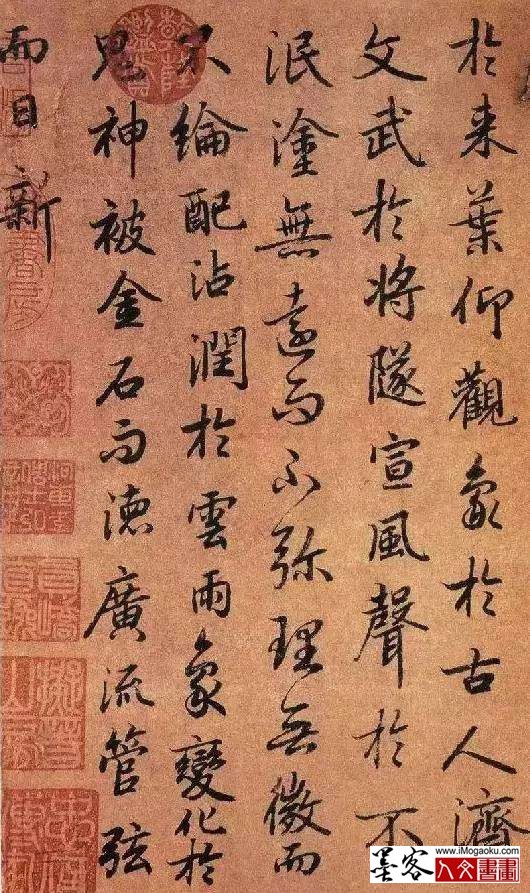 於来葉仰觀象於古人濟
文武於将隊宣風聲於不
泯塗無遠而不弥理无微而
不綸配沾潤於雲雨象變化於
鬼神被金石而德廣流管弦
而日新
墨客
www.iMogaoku.com
人文書畫